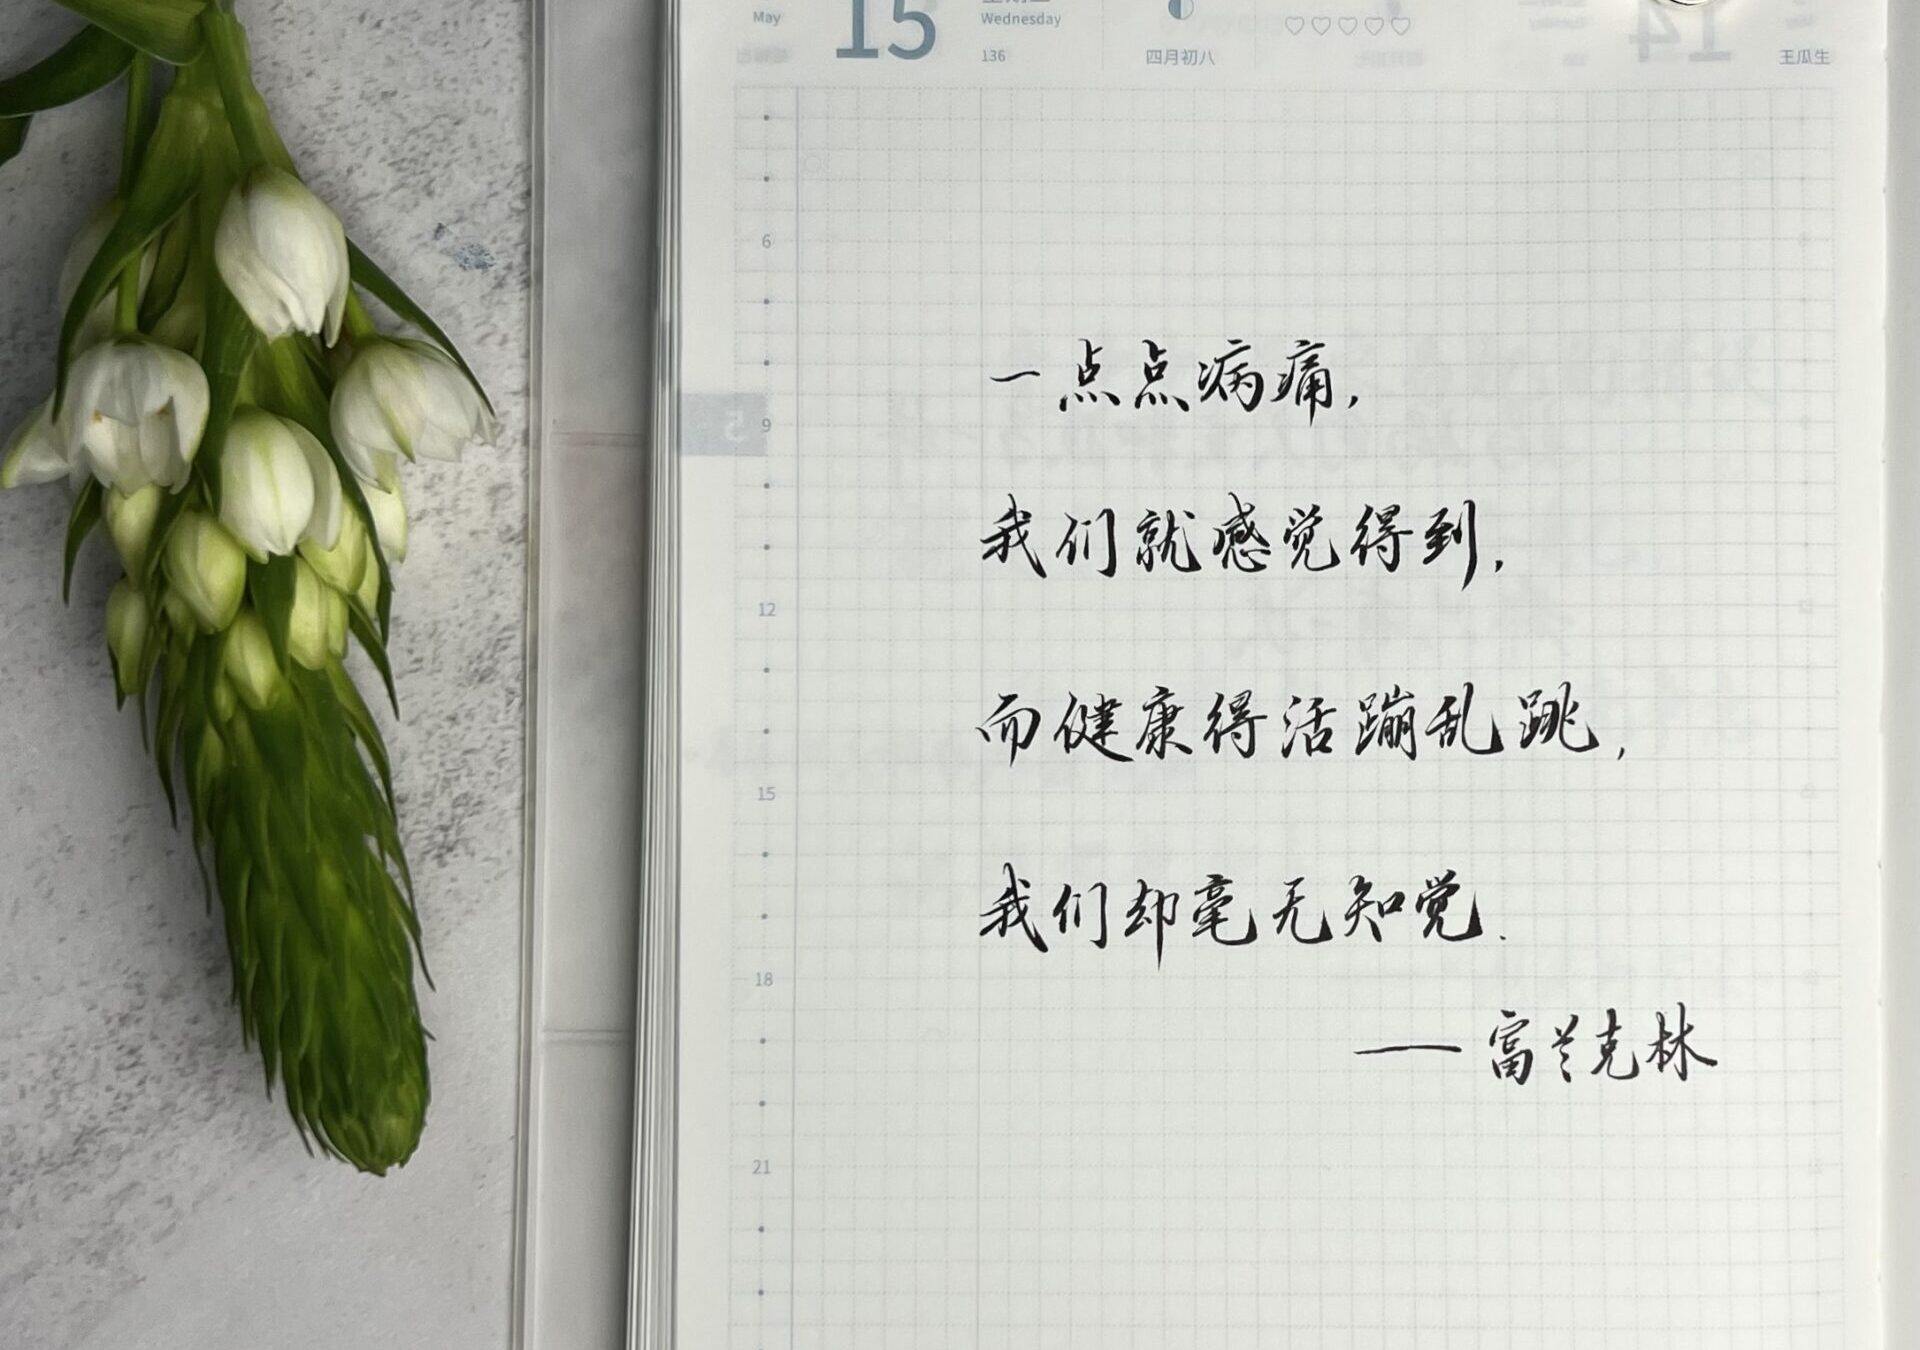 May 15 Wednesday
136 四月初八 王瓜生
6
一点点病痛，
5 9
我们就感觉得到，
12
而健康得活蹦乱跳，
15
我们却毫无知觉.
18
——富兰克林
21